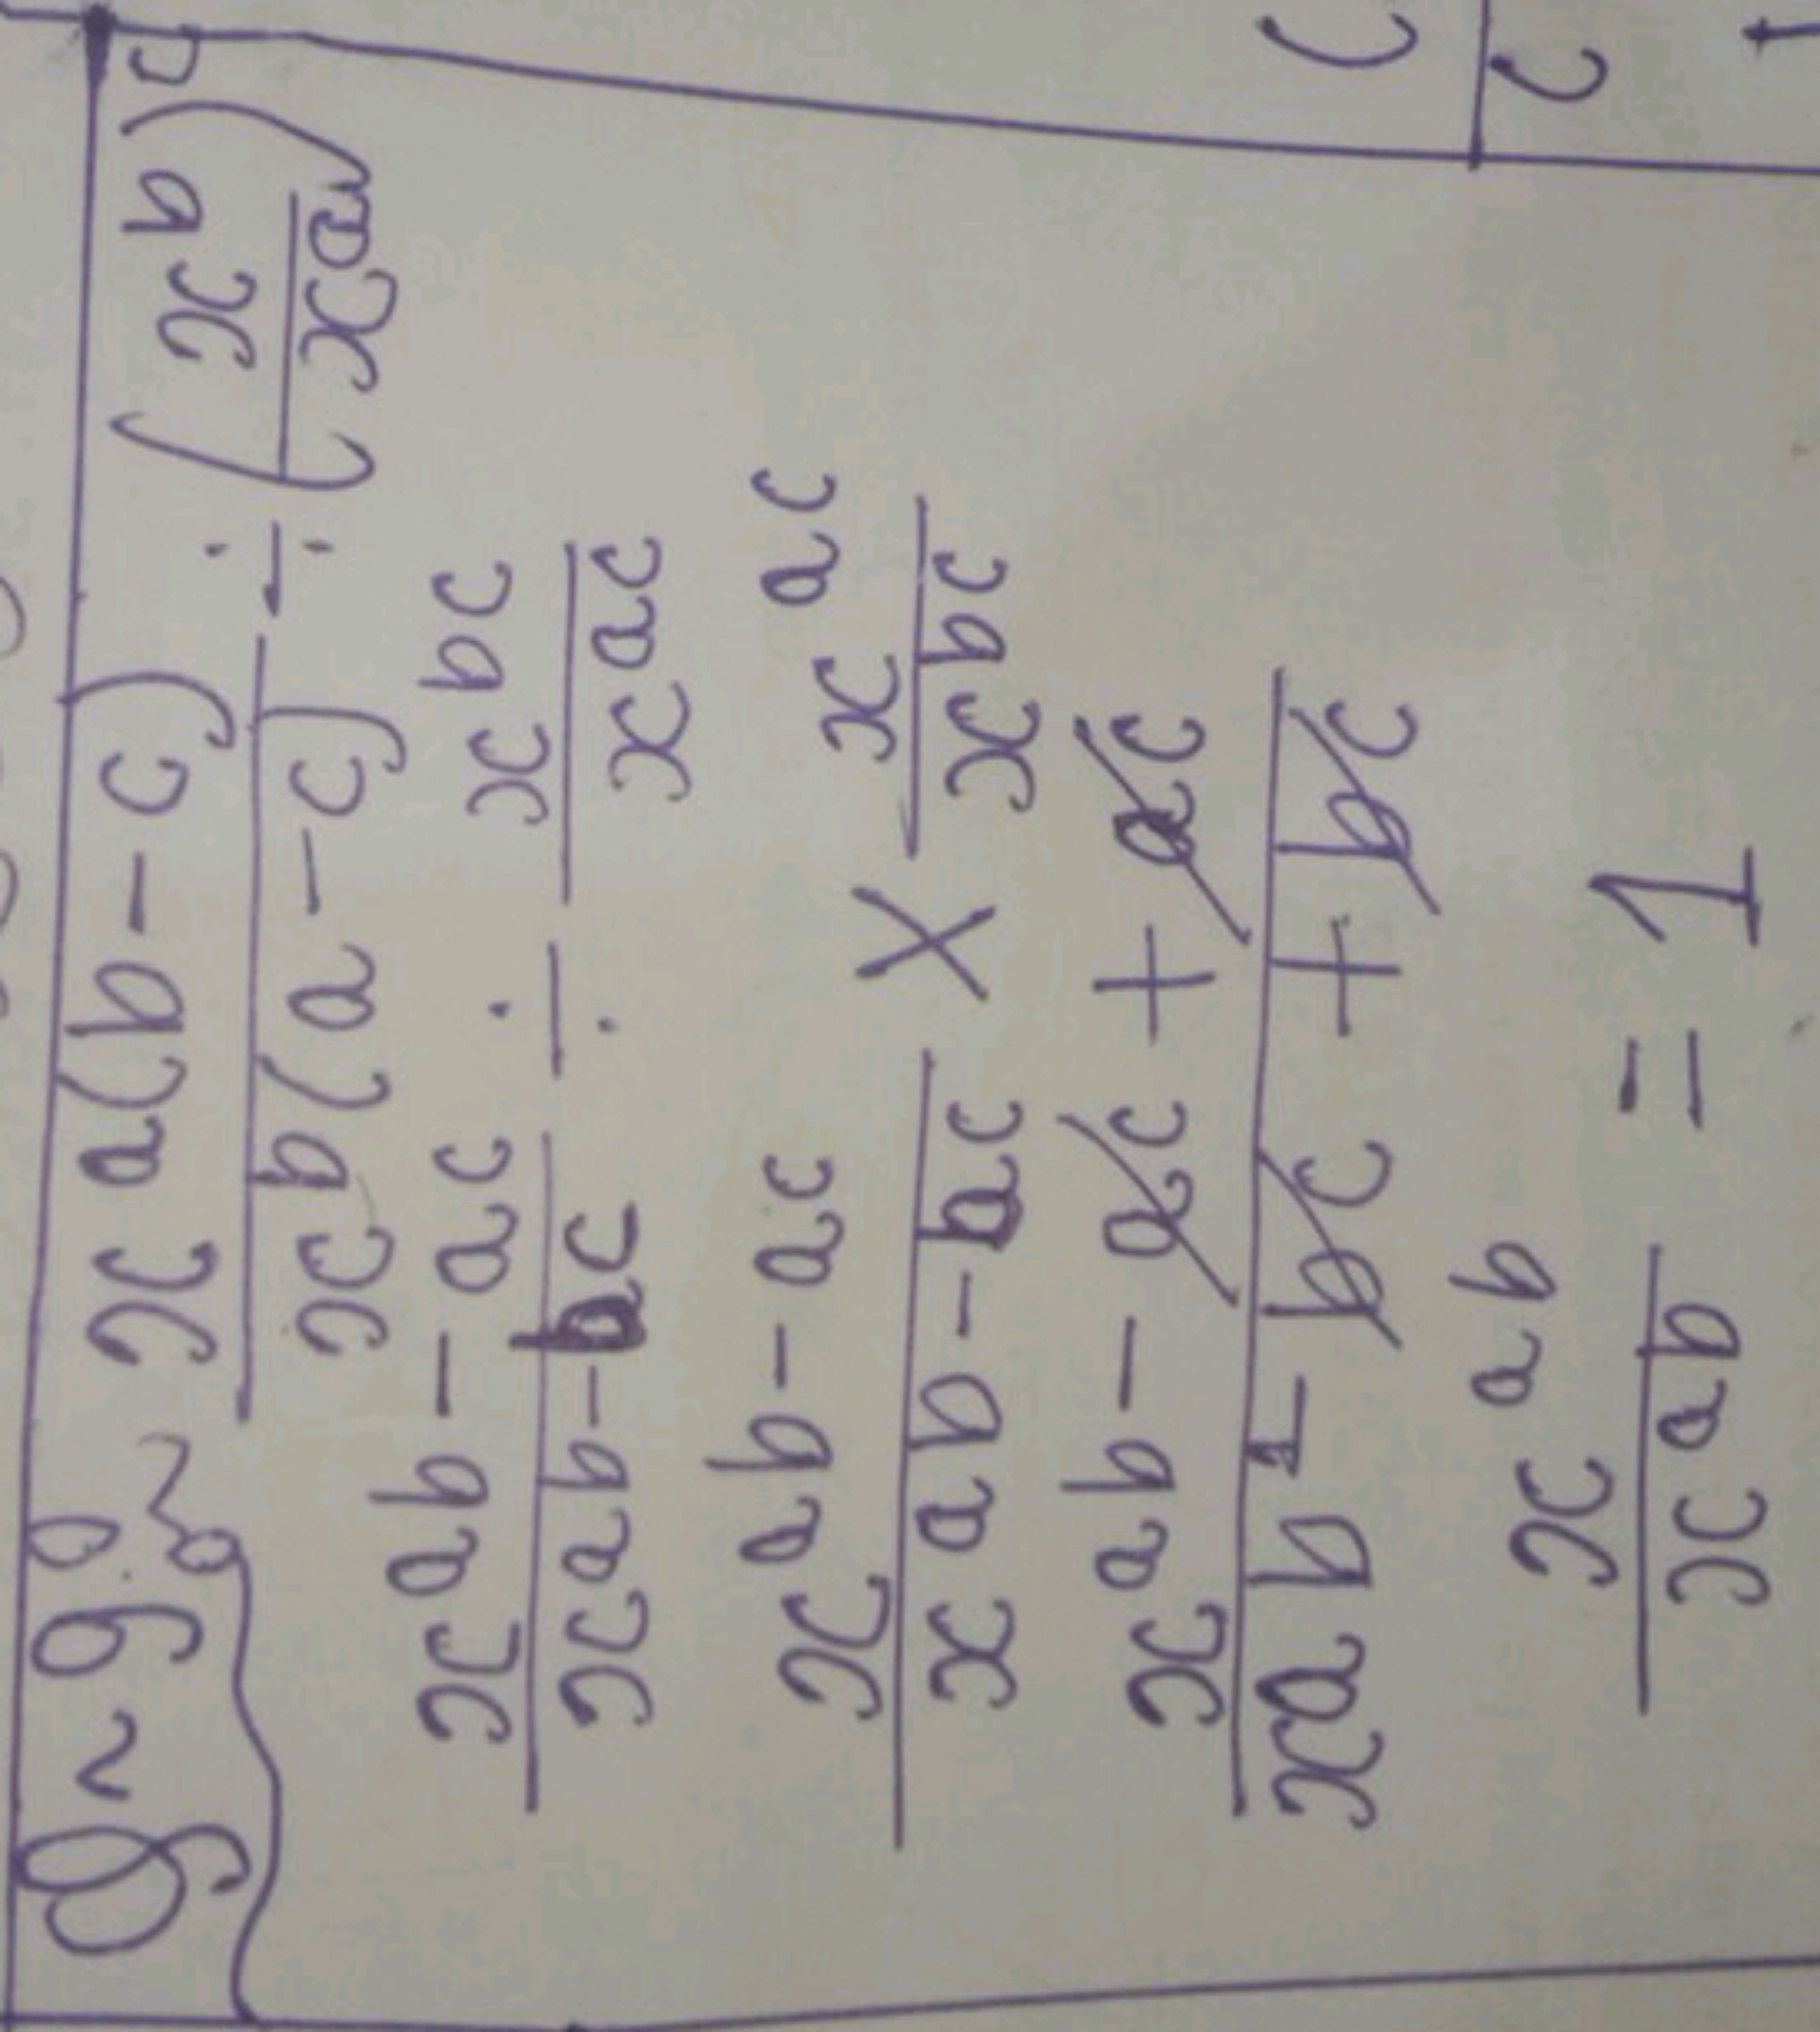 Q~9. x^a(b-c) / x^b(a-c) ÷ (x^b / x^a)^c
x^ab-ac / x^ab-bc ÷ x^bc / x^ac
x^ab-ac / x^ab-bc × x^ac / x^bc
x^ab-ac+ac / x^ab-bc+bc
x^ab / x^ab = 1